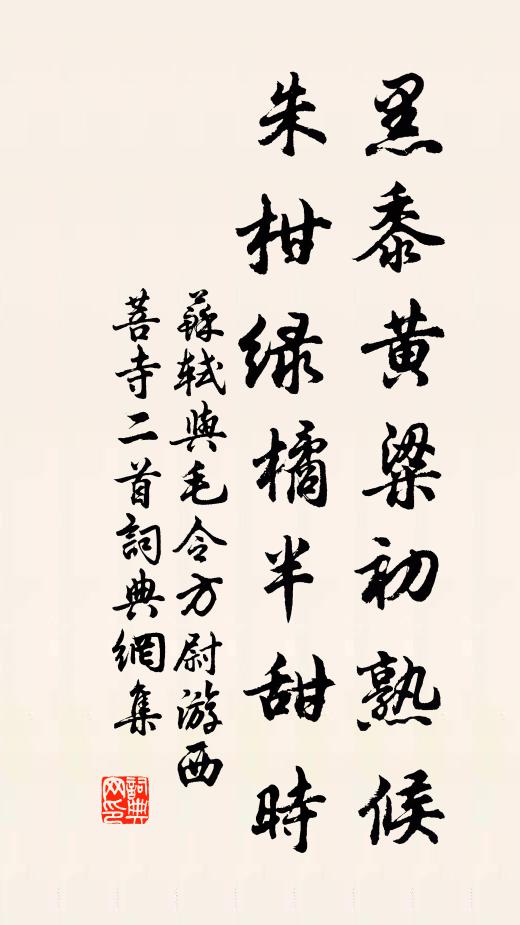 黑黍黄粱初熟候
朱柑緑橘半甜時
蘇軾與毛令方尉游西
菩寺二首詞典網集
詞典網印